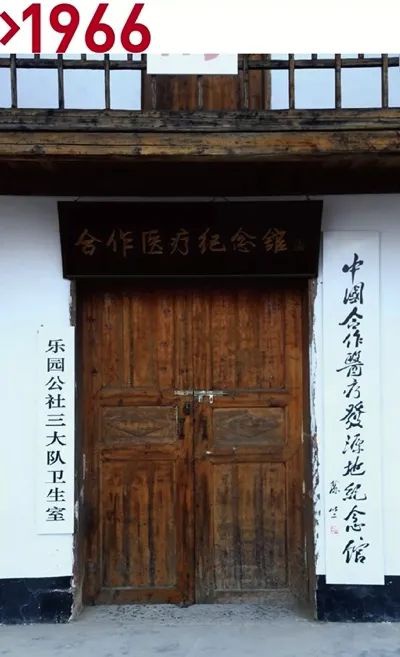 >1966
合作医疗纪念馆
乐园公社三大队卫生室
中國合作醫疗發源地紀念馆